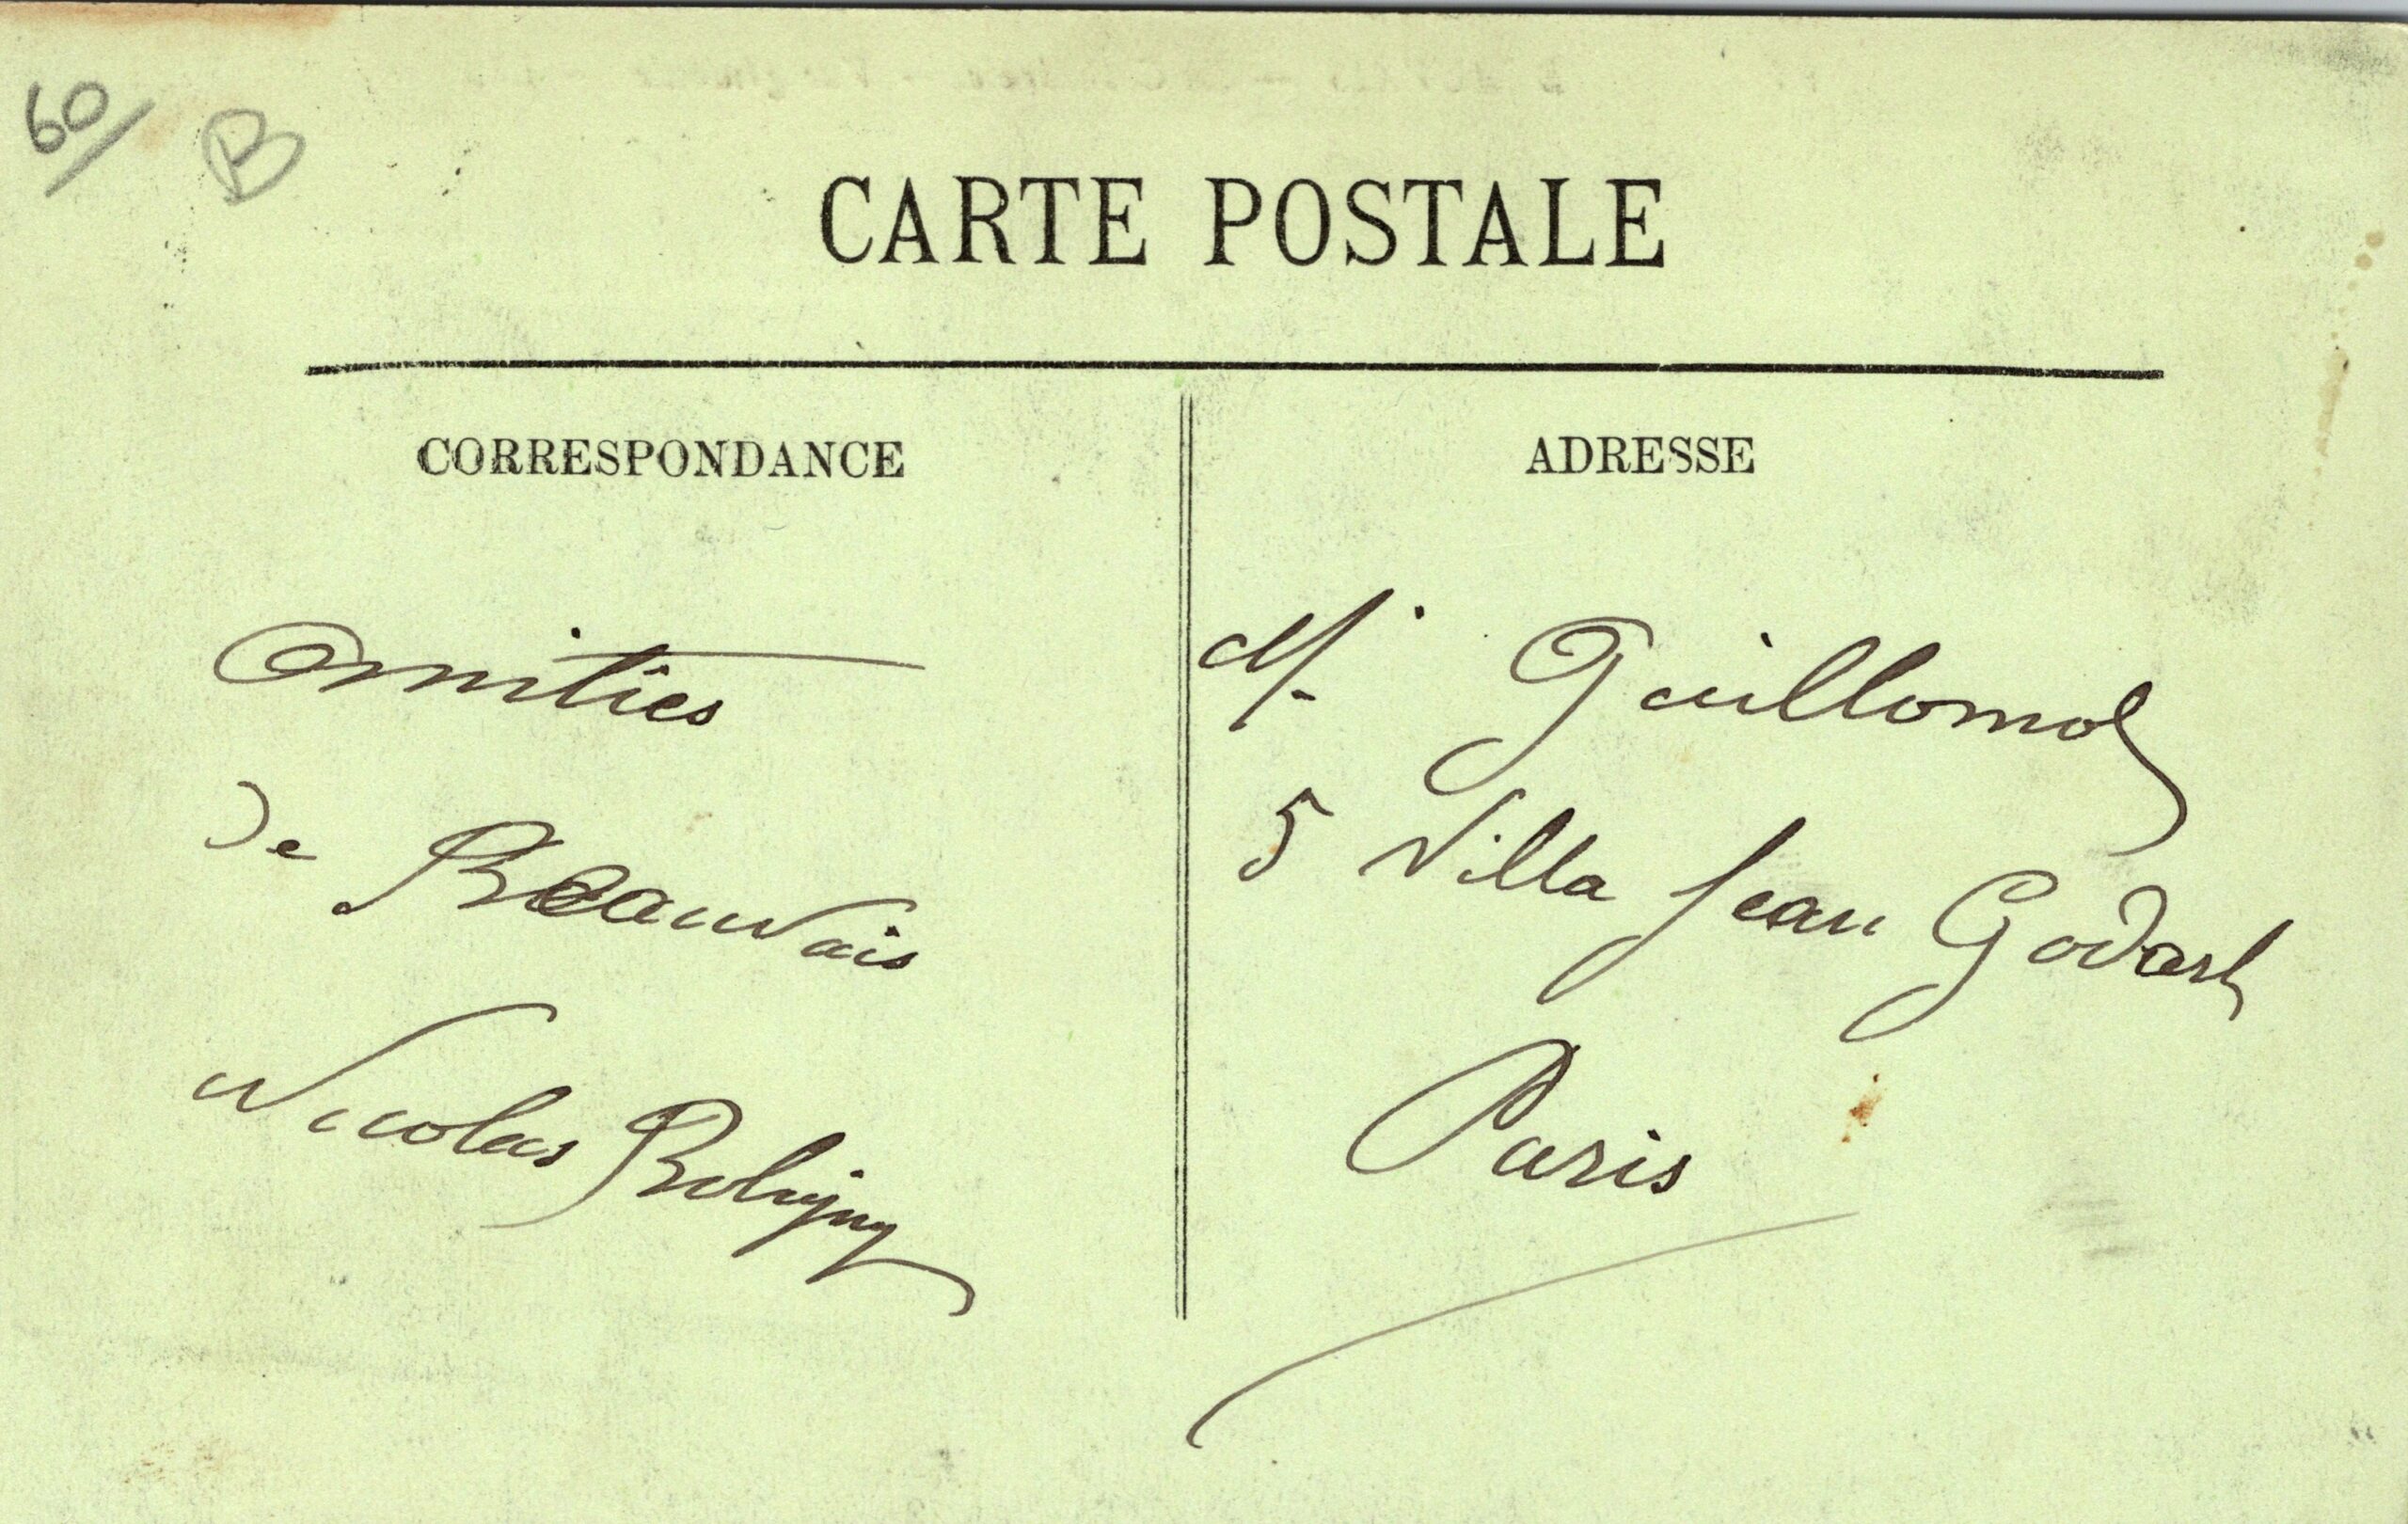 60/ B
CARTE POSTALE
CORRESPONDANCE
Amitiés
de Beauvais
Nicolas
ADRESSE
Mr Guillomot
5 Villa Jean Godart
Paris